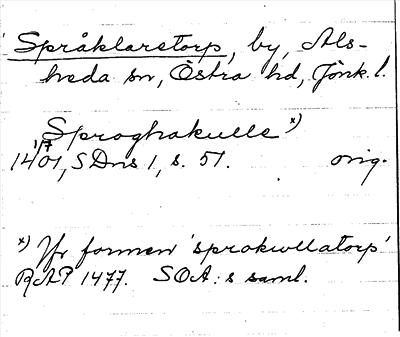 Språklaretorp, by, Als-
heda sn, Östra hd, Jönk. l.
Sproghakulle x)
14 1/7 01, SDns 1, s. 51. orig.
x) Jfr formen 'sprokullatorp'
RAP 1477. SOA:s saml.